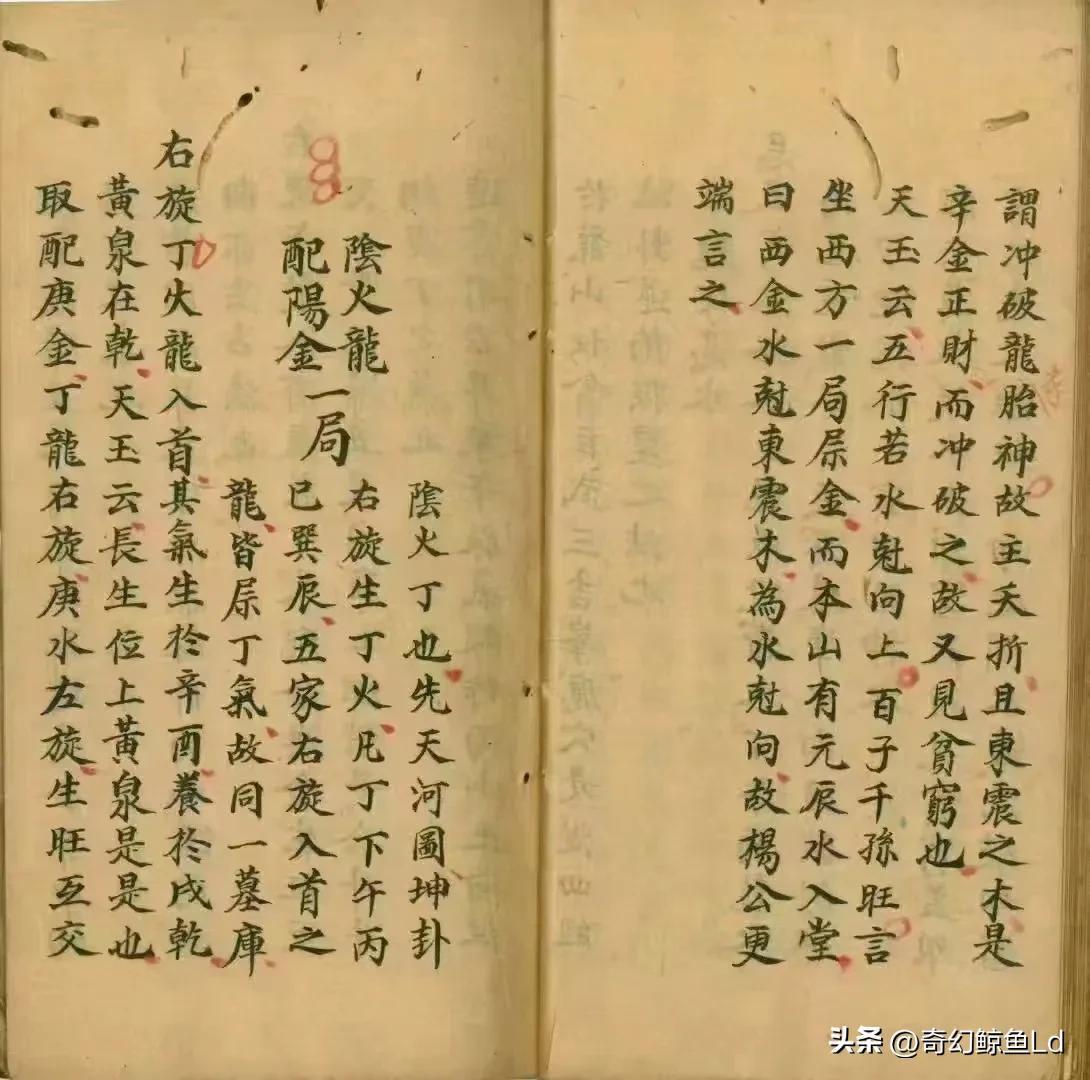 謂冲破龍胎神故主夭折且東震之木是
辛金正財而冲破之故又見貧窮也
天玉云五行若水尅向上百子千孫旺言
坐西方一局屬金而本山有元辰水入堂
曰西金水尅東震木為水尅向故楊公更
端言之
陰火龍
配陽金
一局
陰火丁也先天河圖坤卦
右旋生丁火凡丁下午丙
巳巽辰五家右旋入首之
龍皆屬丁氣故同一墓庫
右旋丁火龍入首其氣生於辛酉養於戌乾
黃泉在乾天玉云長生位上黃泉是是也
取配庚金丁龍右旋庚水左旋生旺互交
头条 @奇幻鲸鱼Ld